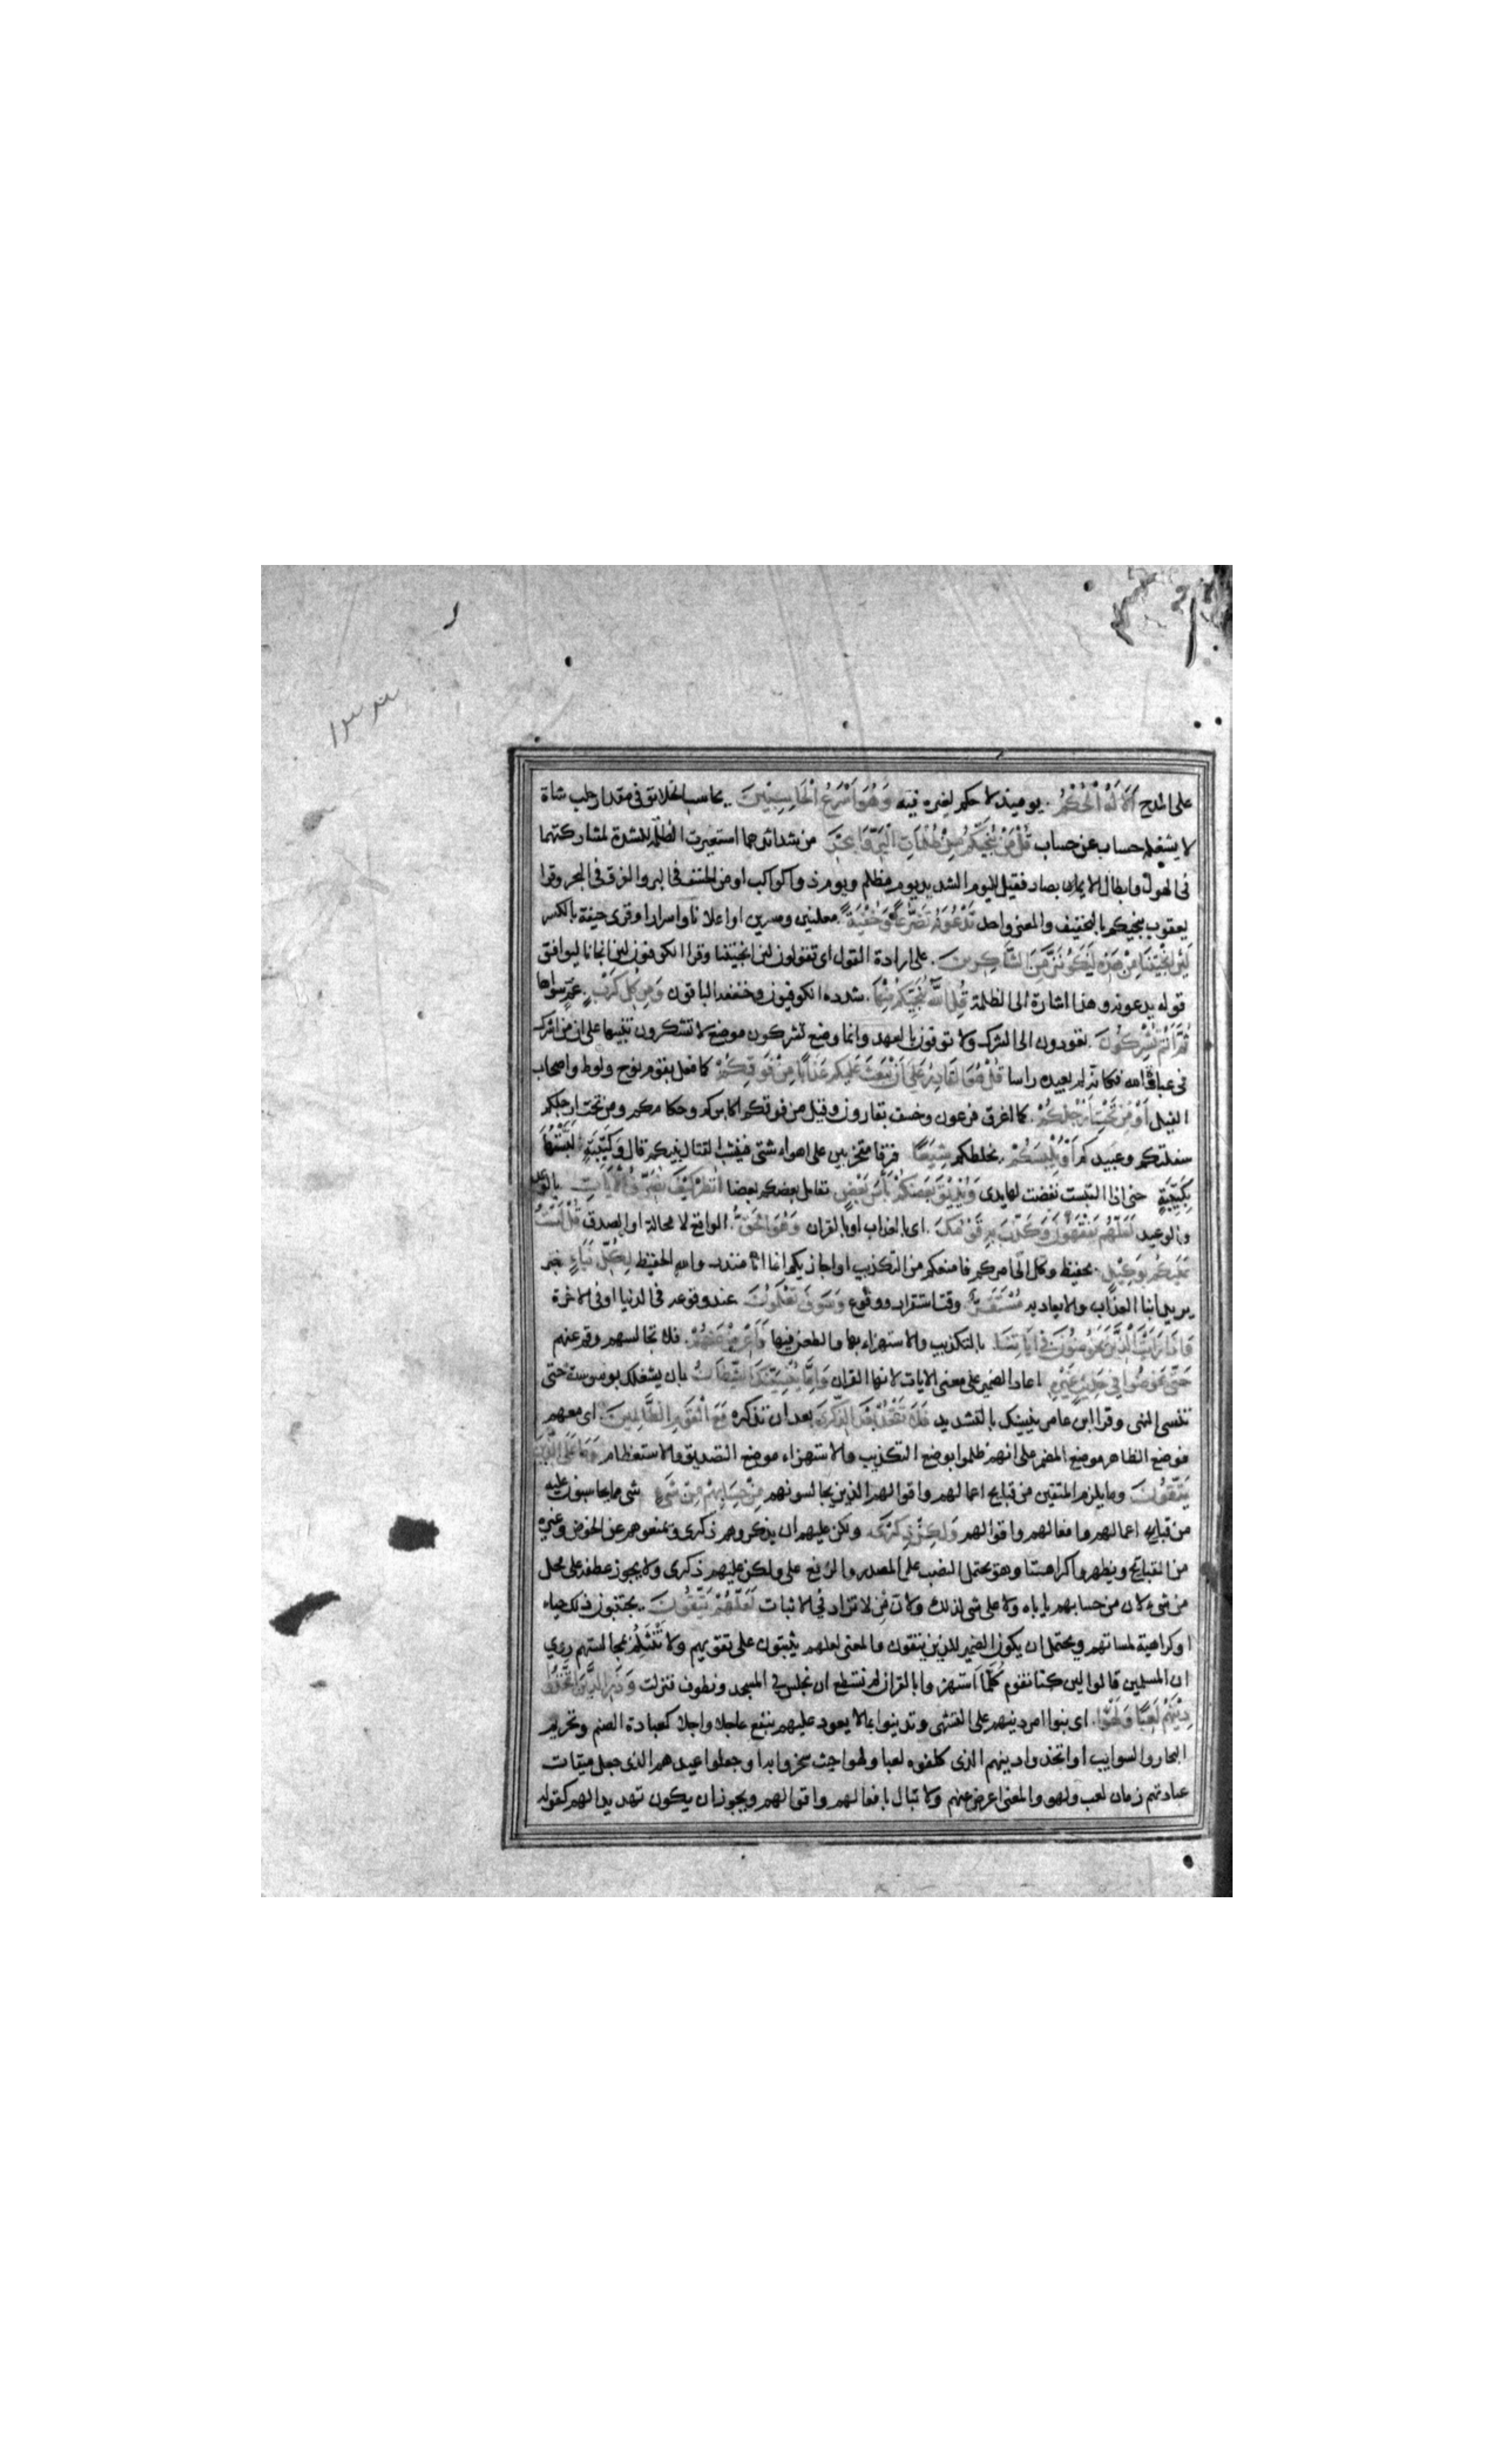 ١٣٣
على المدح أَلَا لَهُ الْحُكْمُ يومئذ لا حكم لغيره فيه وَهُوَ أَسْرَعُ الْحَاسِبِينَ يحاسب الخلائق في مقدار حلب شاة
لا يشغله حساب عن حساب قُلْ مَنْ يُنَجِّيكُمْ مِنْ ظُلُمَاتِ الْبَرِّ وَالْبَحْرِ من شدائدهما استعيرت الظلمة للشدة لمشاركتهما
في الهول وابطال الابصار فقيل لليوم الشديد يوم مظلم ويوم ذو كواكب او من الخسف في البر والغرق في البحر وقرا
يعقوب ينجيكم بالتخفيف والمعنى واحد تَدْعُونَهُ تَضَرُّعًا وَخُفْيَةً معلنين ومسرين او اعلانا واسرارا وقرى خفية بالكسر
لَئِنْ أَنْجَيْتَنَا مِنْ هَذِهِ لَنَكُونَنَّ مِنَ الشَّاكِرِينَ على ارادة القول اى تقولون لئن انجيتنا وقرا الكوفيون لئن انجانا ليوافق
قوله يدعونه وهذا اشارة الى الظلمة قُلِ اللَّهُ يُنَجِّيكُمْ مِنْهَا شدده الكوفيون وخففه الباقون وَمِنْ كُلِّ كَرْبٍ غم سواها
ثُمَّ أَنْتُمْ تُشْرِكُونَ تعودون الى الشرك ولا توفون بالعهد وانما وضع تشركون موضع لا تشكرون تنبيها على ان من اشرك
في عبادة الله فكانه لم يعبده راسا قُلْ هُوَ الْقَادِرُ عَلَى أَنْ يَبْعَثَ عَلَيْكُمْ عَذَابًا مِنْ فَوْقِكُمْ كما فعل بقوم نوح ولوط واصحاب
الفيل أَوْ مِنْ تَحْتِ أَرْجُلِكُمْ كما اغرق فرعون وخسف بقارون وقيل من فوقكم اكابركم وحكامكم ومن تحت ارجلكم
سفلتكم وعبيدكم أَوْ يَلْبِسَكُمْ يخلطكم شِيَعًا فرقا متحزبين على اهواء شتى فينشب القتال بينكم قال وَكَتِيبَةٍ لَبَّسْتُهَا
بِكَتِيبَةٍ حتى اذا التبست نفضت لها يدى وَيُذِيقَ بَعْضَكُمْ بَأْسَ بَعْضٍ يقاتل بعضكم بعضا انْظُرْ كَيْفَ نُصَرِّفُ الْآيَاتِ بالوعد
والوعيد لَعَلَّهُمْ يَفْقَهُونَ وَكَذَّبَ بِهِ قَوْمُكَ اى بالعذاب او بالقران وَهُوَ الْحَقُّ الواقع لا محالة او الصدق قُلْ لَسْتُ
عَلَيْكُمْ بِوَكِيلٍ بحفيظ وكل الى امركم فامنعكم من التكذيب او اجازيكم انما انا منذر والله الحفيظ لِكُلِّ نَبَإٍ خبر
يريد انبا العذاب والايعاد به مُسْتَقَرٌّ وقت استقرار ووقوع وَسَوْفَ تَعْلَمُونَ عند وقوعه في الدنيا او في الاخرة
وَإِذَا رَأَيْتَ الَّذِينَ يَخُوضُونَ فِي آيَاتِنَا بالتكذيب والاستهزاء بها والطعن فيها فَأَعْرِضْ عَنْهُمْ فلا تجالسهم وقم عنهم
حَتَّى يَخُوضُوا فِي حَدِيثٍ غَيْرِهِ اعاد الضمير على معنى الايات لانها القران وَإِمَّا يُنْسِيَنَّكَ الشَّيْطَانُ بان يشغلك بوسوسته حتى
تنسى النهى وقرا ابن عامر ينسينك بالتشديد فَلَا تَقْعُدْ بَعْدَ الذِّكْرَى بعد ان تذكره مَعَ الْقَوْمِ الظَّالِمِينَ اى معهم
فوضع الظاهر موضع المضمر على انهم ظلموا بوضع التكذيب والاستهزاء موضع التصديق والاستعظام وَمَا عَلَى الَّذِينَ
يَتَّقُونَ وما يلزم المتقين من قبايح اعمالهم واقوالهم الذين يجالسونهم مِنْ حِسَابِهِمْ مِنْ شَيْءٍ شى مما يحاسبون عليه
من قبايح اعمالهم وافعالهم واقوالهم وَلَكِنْ ذِكْرَى ولكن عليهم ان يذكروهم ذكرى ويمنعوهم عن الخوض وغيره
من القبايح ويظهروا كراهتها وهو يحتمل النصب على المصدر والرفع على ولكن عليهم ذكرى ولا يجوز عطفه على محل
من شىء لان من حسابهم ياباه ولا على شى لذلك ولان من لا تزاد في الاثبات لَعَلَّهُمْ يَتَّقُونَ يجتنبون ذلك حياء
او كراهية لمساتهم ويحتمل ان يكون الضمير للذين يتقون والمعنى لعلهم يثبتون على تقويهم ولا تنثلم بمجالستهم روي
ان المسلمين قالوا لئن كنا نقوم كلما استهزوا بالقران لم نستطع ان نجلس في المسجد ونطوف فنزلت وَذَرِ الَّذِينَ اتَّخَذُوا
دِينَهُمْ لَعِبًا وَلَهْوًا اى بنوا امر دينهم على التشهى وتدينوا بما لا يعود عليهم بنفع عاجلا واجلا كعبادة الصنم وتحريم
البحاير والسوايب او اتخذوا دينهم الذى كلفوه لعبا ولهوا حيث سخروا به او جعلوا عيدهم الذى جعل ميقات
عبادتهم زمان لعب ولهو والمعنى اعرض عنهم ولا تبال بافعالهم واقوالهم ويجوز ان يكون تهديدا لهم كقوله